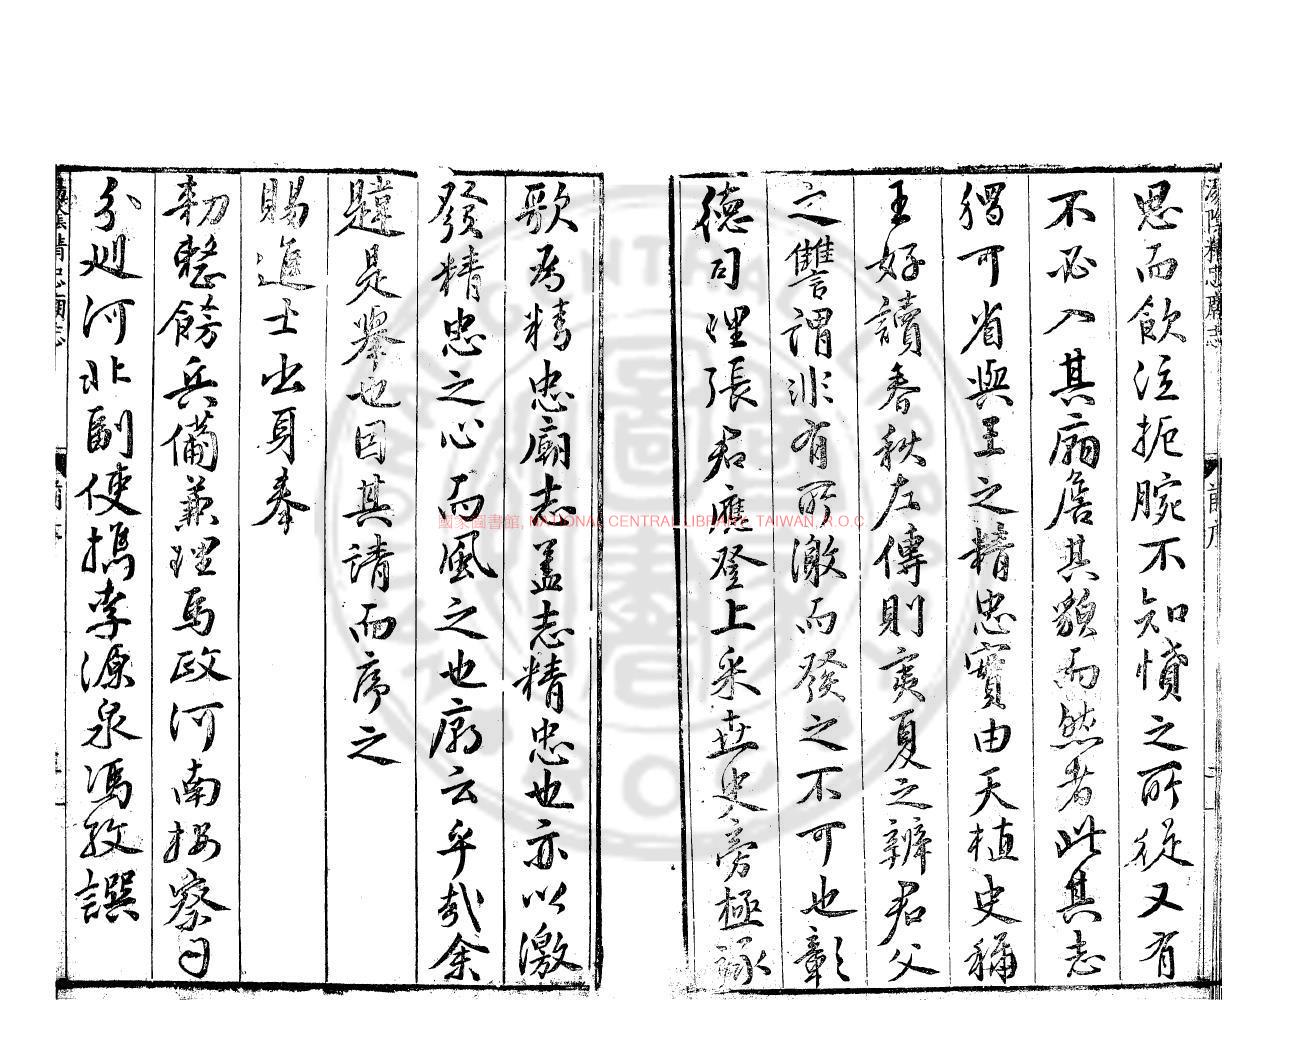 湯陰精忠廟志
前序
思而飲泣扼腕不知憤之所從又有
不必入其廟詹其貌而然者此其志
獨可省與王之精忠實由天植史稱
王好讀春秋左傳則夷夏之辨君父
之讐謂非有所激而發之不可也彰
德司理張君應登上采世史旁極詠
歌為精忠廟志盖志精忠也亦以激
發精忠之心而風之也廟云乎哉余
韙是舉也因其請而序之
賜進士出身奉
勑整飭兵備兼理馬政河南按察司
分廵河北副使檇李源泉馮孜譔
湯陰精忠廟志
前序
國家圖書館, NATIONAL CENTRAL LIBRARY, TAIWAN, R.O.C